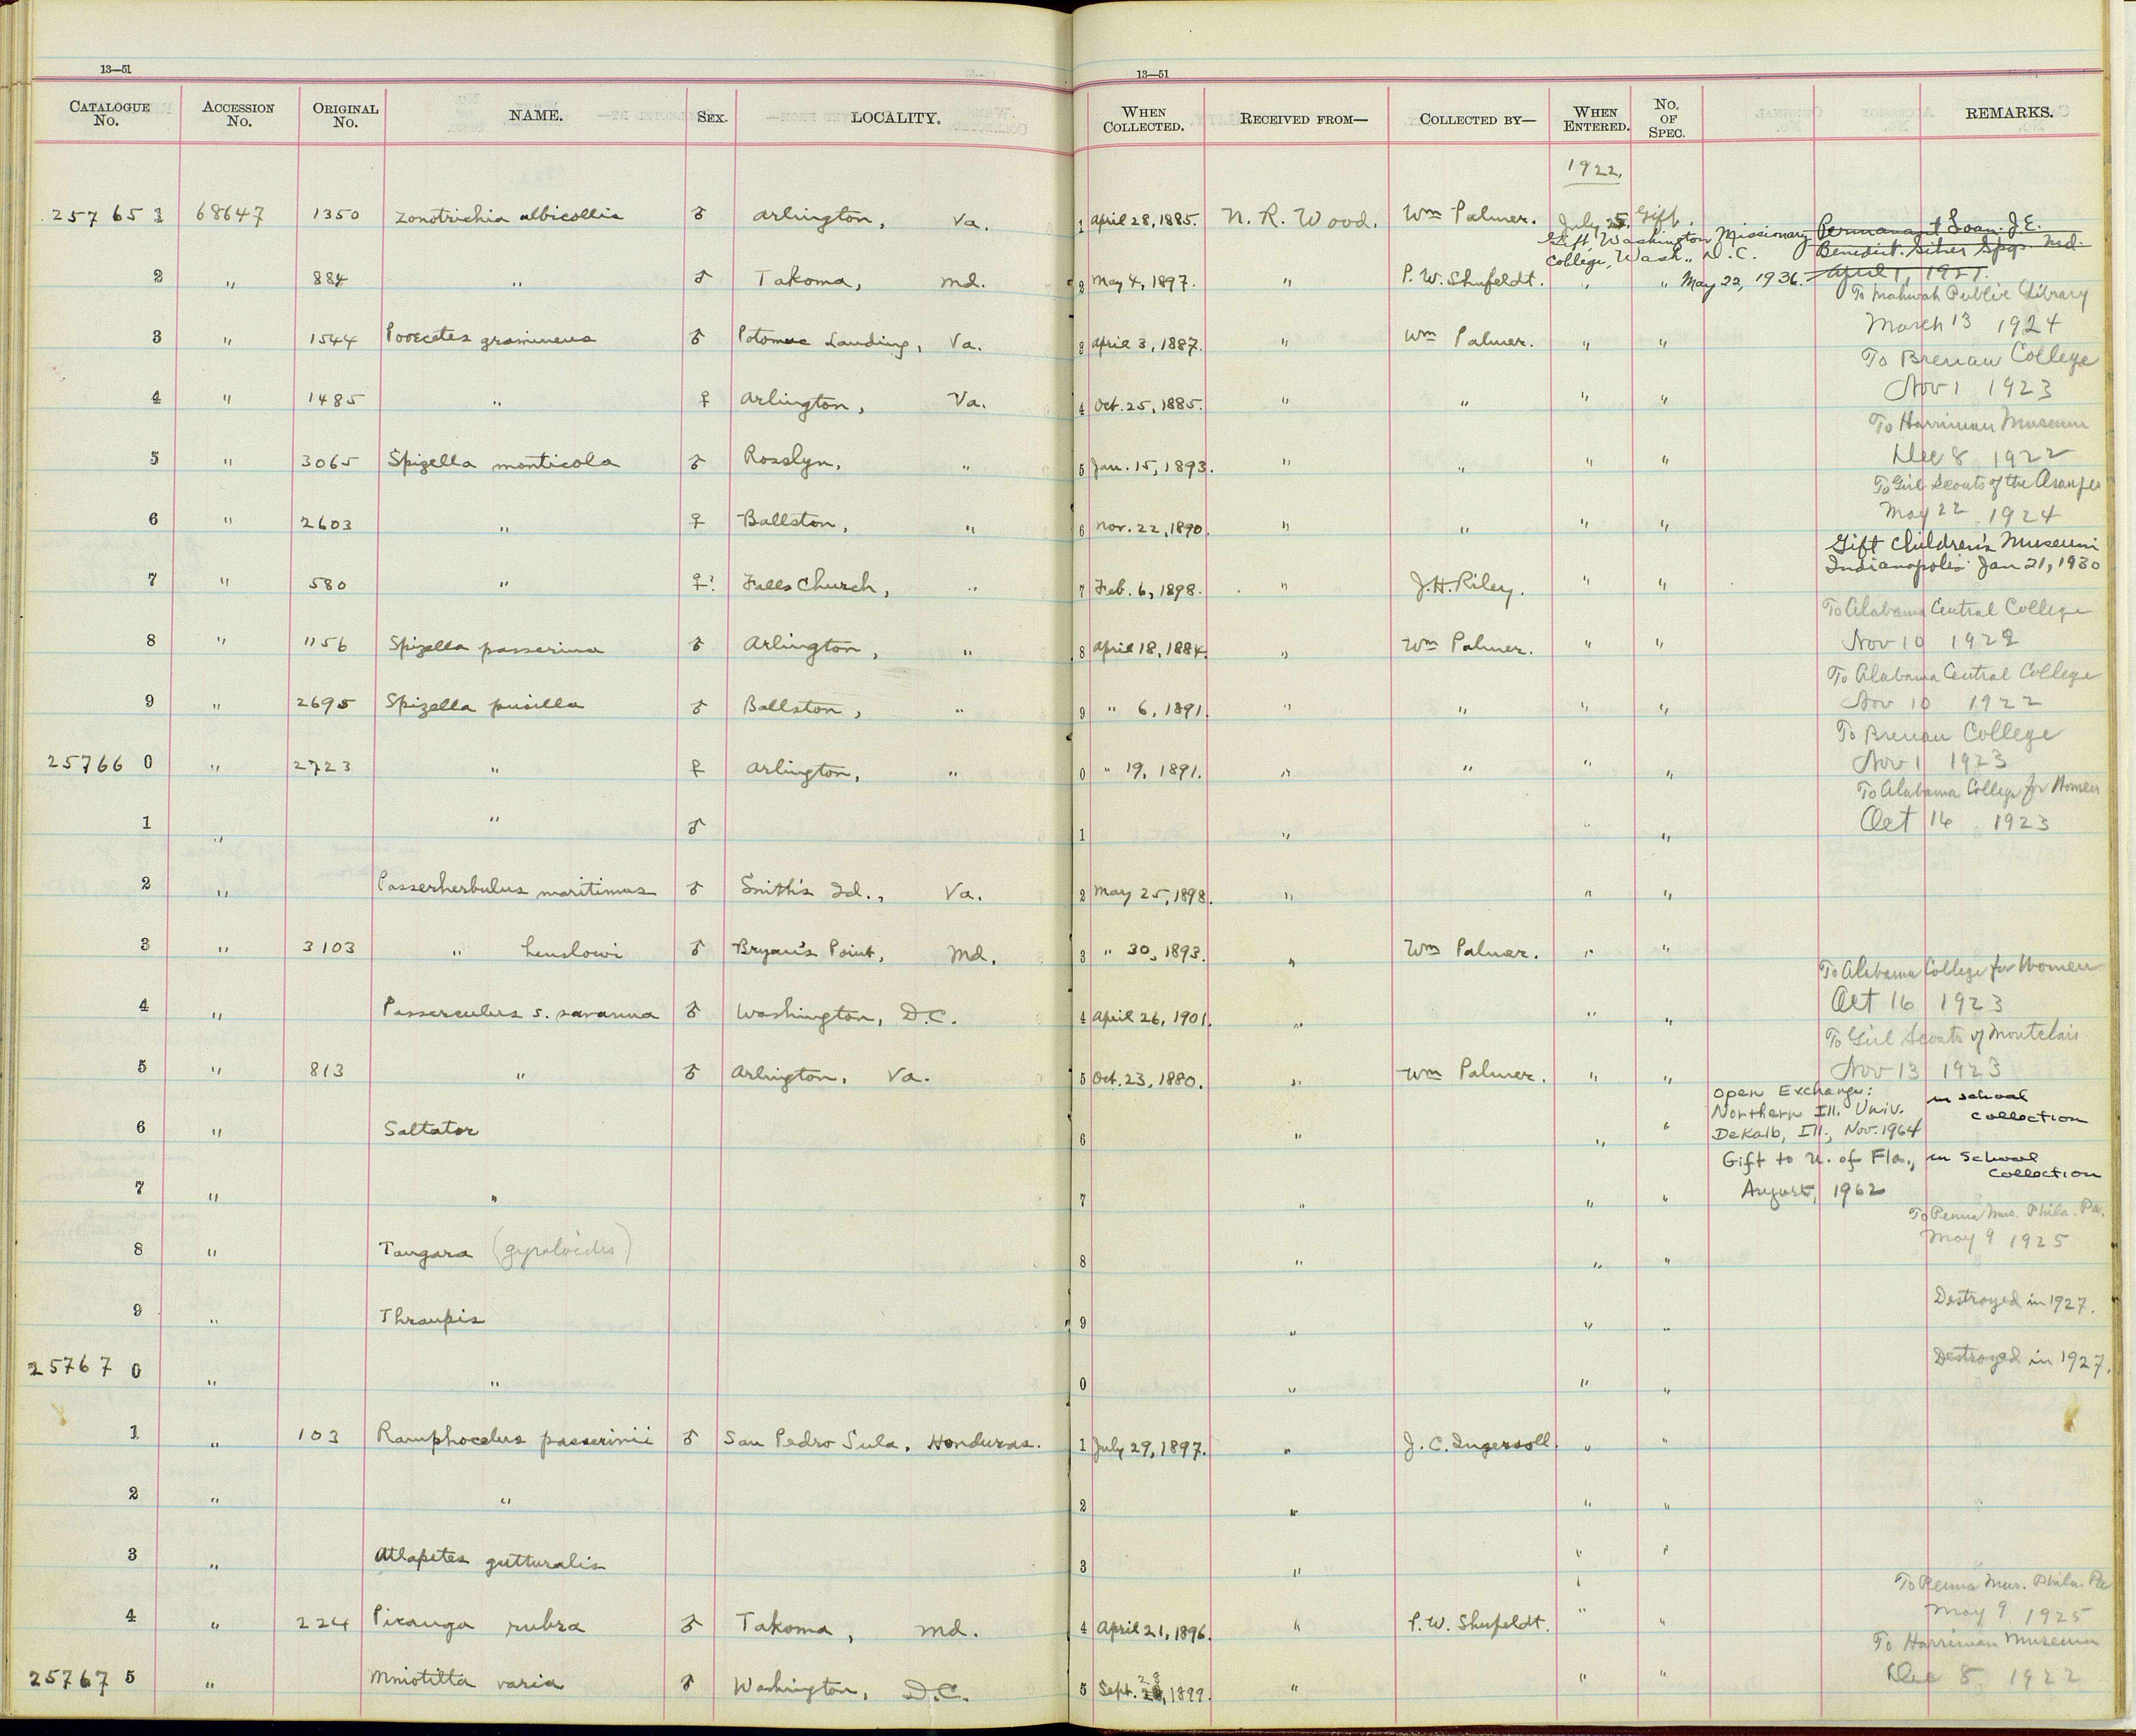 13—51
13—51
CATALOGUE No. ACCESSION No. ORIGINAL No. NAME. SEX. LOCALITY. WHEN COLLECTED. RECEIVED FROM— COLLECTED BY— WHEN ENTERED. No. OF SPEC. REMARKS.
1922.
257651 68647 1350 Zonotrichia albicollis ♂ Arlington, Va. 1 April 28, 1885. N. R. Wood. Wm Palmer. July 25, Gift.
Gift, Washington Missionary College, Wash., D.C. May 22, 1936. Permanent Loan J.E. Benedict. Silver Spgs. Md. April 1, 1927.
2 " 884 " ♂ Takoma, Md. 2 May 4, 1897. " P. W. Shufeldt. " "
To Mahwah Public Library
March 13 1924
3 " 1544 Pooecetes gramineus ♂ Potomac Landing, Va. 3 April 3, 1887. " Wm Palmer. " "
To Brenau College
Nov 1 1923
4 " 1485 " ♀ Arlington, Va. 4 Oct. 25, 1885. " " " "
To Harriman Museum
Dec 8 1922
5 " 3065 Spizella monticola ♂ Rosslyn, " 5 Jan. 15, 1893. " " " "
To Girl Scouts of the
May 22 1924
6 " 2603 " ♀ Ballston, " 6 Nov. 22, 1890. " " " "
Gift Children's Museum
Indianapolis Jan 21, 1930
7 " 580 " ♀? Falls Church, " 7 Feb. 6, 1898. " J.H. Riley. " "
To Alabama Central College
Nov 10 1922
8 " 1156 Spizella passerina ♂ Arlington, " 8 April 18, 1884. " Wm Palmer. " "
To Alabama Central College
Nov 10 1922
9 " 2695 Spizella pusilla ♂ Ballston, " 9 " 6, 1891. " " " "
To Brenau College
Nov 1 1923
257660 " 2723 " ♀ Arlington, " 0 " 19, 1891. " " " "
To Alabama College for Women
Oct 16 1923
1 " " ♂ 1 " " "
2 " Passerherbulus maritimus ♂ Smith's Id., Va. 2 May 25, 1898. " " "
3 " 3103 " henslowi ♂ Bryan's Point, Md. 3 " 30, 1893. " Wm Palmer. " "
To Alabama College for Women
Oct 16 1923
4 " Passerculus s. savanna ♂ Washington, D.C. 4 April 26, 1901. " " "
To Girl Scouts of Montclair
Nov 13 1923
5 " 813 " ♂ Arlington, Va. 5 Oct. 23, 1880. " Wm Palmer. " "
Open Exchange: Northern Ill. Univ. DeKalb, Ill., Nov. 1964 in school collection
6 " Saltator 6 " " "
Gift to U. of Fla., August, 1962 in school collection
7 " " 7 " " "
To Penna Mus. Phila. Pa.
May 9 1925
8 " Tangara (gyroloides) 8 " " "
Destroyed in 1927.
9 " Thraupis 9 " " "
Destroyed in 1927.
257670 " " 0 " " "
1 " 103 Ramphocelus passerinii ♂ San Pedro Sula, Honduras. 1 July 29, 1897. " J. C. Ingersoll. " "
2 " " 2 " " "
3 " Atlapetes gutturalis 3 " " "
To Penna Mus. Phila. Pa
May 9 1925
4 " 224 Piranga rubra ♂ Takoma, Md. 4 April 21, 1896. " P. W. Shufeldt. " "
To Harriman Museum
Dec 8 1922
257675 " Mniotilta varia ♂ Washington, D.C. 5 Sept. 28, 1899. " " "